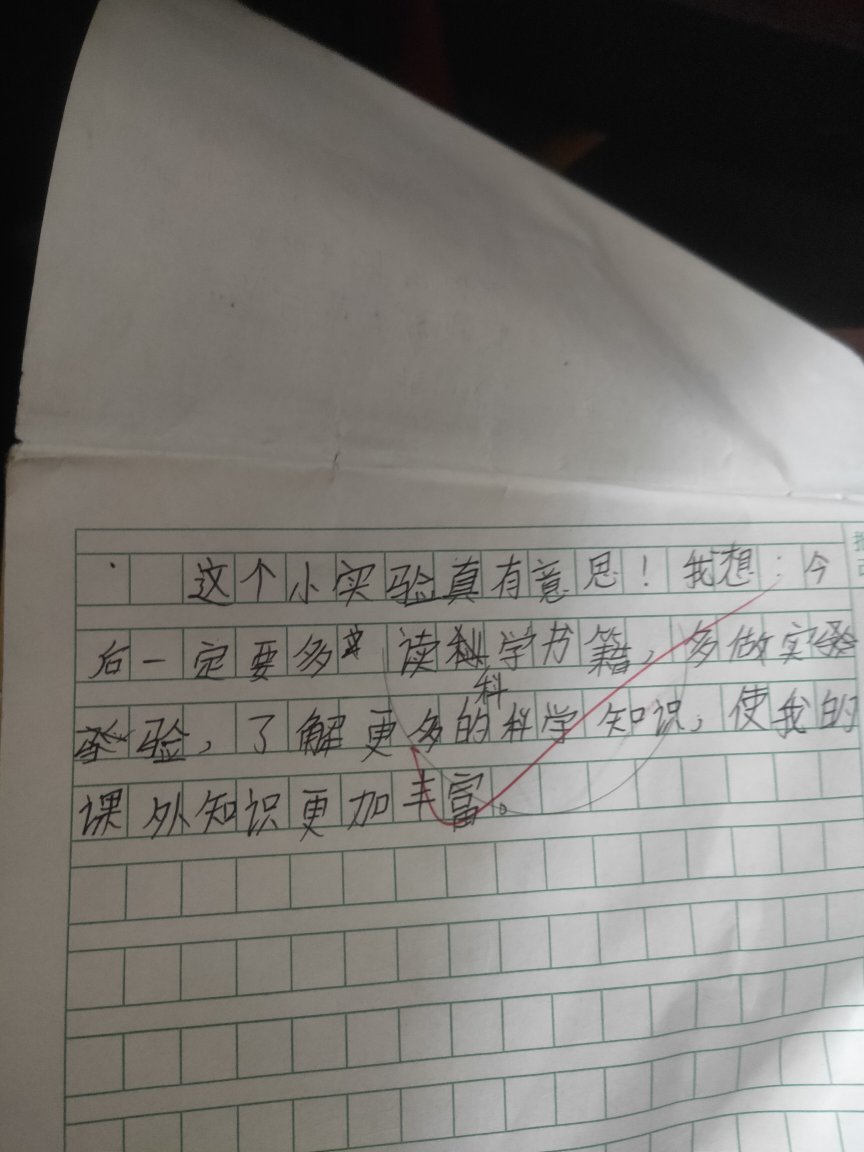 这个小实验真有意思！我想：今
后一定要多读科学书籍，多做实
验，了解更多的科学知识，使我的
课外知识更加丰富。